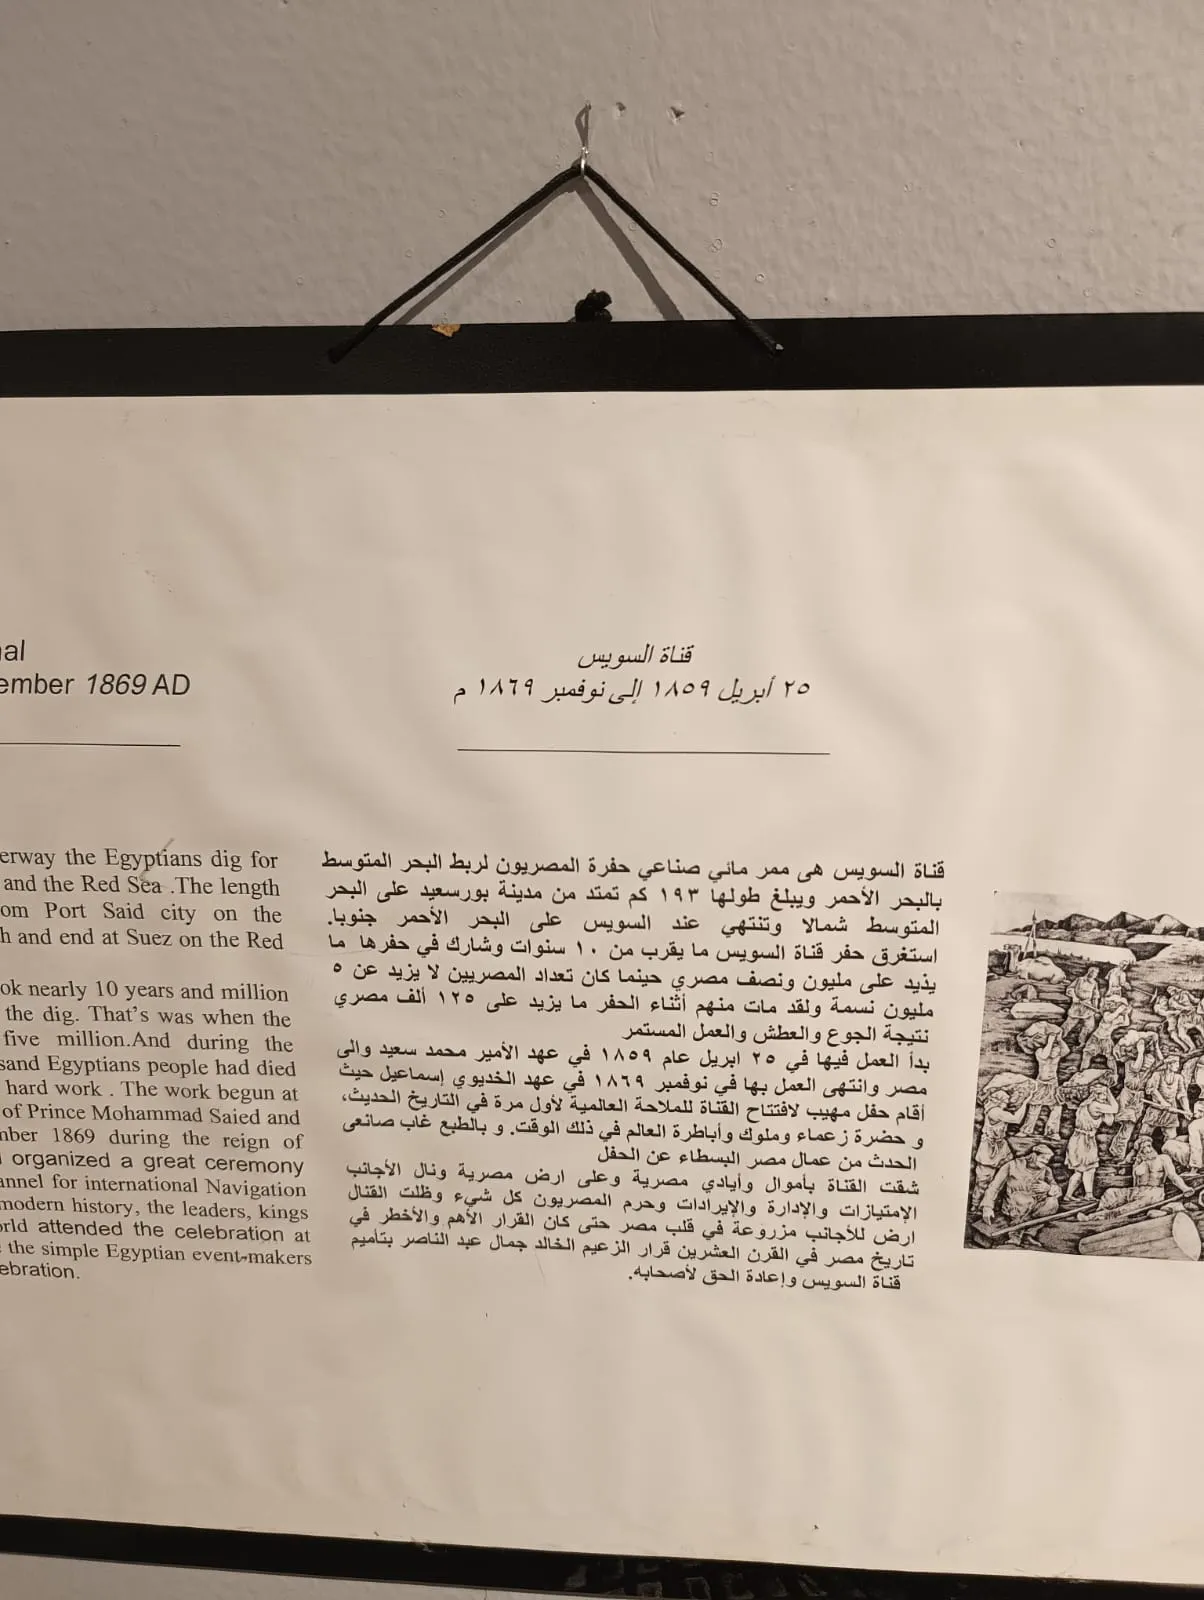 قناة السويس
٢٥ أبريل ١٨٥٩ إلى نوفمبر ١٨٦٩ م
قناة السويس هى ممر مائي صناعي حفرة المصريون لربط البحر المتوسط
بالبحر الأحمر ويبلغ طولها ١٩٣ كم تمتد من مدينة بورسعيد على البحر
المتوسط شمالا وتنتهي عند السويس على البحر الأحمر جنوبا.
استغرق حفر قناة السويس ما يقرب من ١٠ سنوات وشارك في حفرها ما
يذيد على مليون ونصف مصري حينما كان تعداد المصريين لا يزيد عن ٥
مليون نسمة ولقد مات منهم أثناء الحفر ما يزيد على ١٢٥ ألف مصري
نتيجة الجوع والعطش والعمل المستمر
بدأ العمل فيها في ٢٥ ابريل عام ١٨٥٩ في عهد الأمير محمد سعيد والى
مصر وانتهى العمل بها في نوفمبر ١٨٦٩ في عهد الخديوي إسماعيل حيث
أقام حفل مهيب لافتتاح القناة للملاحة العالمية لأول مرة في التاريخ الحديث،
و حضرة زعماء وملوك وأباطرة العالم في ذلك الوقت. و بالطبع غاب صانعى
الحدث من عمال مصر البسطاء عن الحفل
شقت القناة بأموال وأيادي مصرية وعلى ارض مصرية ونال الأجانب
الإمتيازات والإدارة والإيرادات وحرم المصريون كل شيء وظلت القنال
ارض للأجانب مزروعة في قلب مصر حتى كان القرار الأهم والأخطر في
تاريخ مصر في القرن العشرين قرار الزعيم الخالد جمال عبد الناصر بتأميم
قناة السويس وإعادة الحق لأصحابه.
nal
ember 1869 AD
erway the Egyptians dig for
and the Red Sea .The length
om Port Said city on the
h and end at Suez on the Red
ok nearly 10 years and million
the dig. That's was when the
five million.And during the
sand Egyptians people had died
hard work . The work begun at
of Prince Mohammad Saied and
mber 1869 during the reign of
organized a great ceremony
annel for international Navigation
modern history, the leaders, kings
orld attended the celebration at
the simple Egyptian event-makers
ebration.